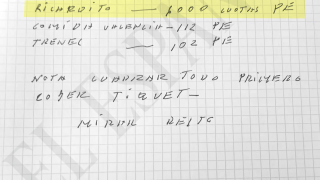 RICARDITO — 6000 CUOTAS PE
COMIDA VALENCIA - 112 PE
TRENEC — 102 PE
NOTA CUADRAR TODO PRIMERO
COGER TIQUET -
MIRAR RESTO
EL ESPA